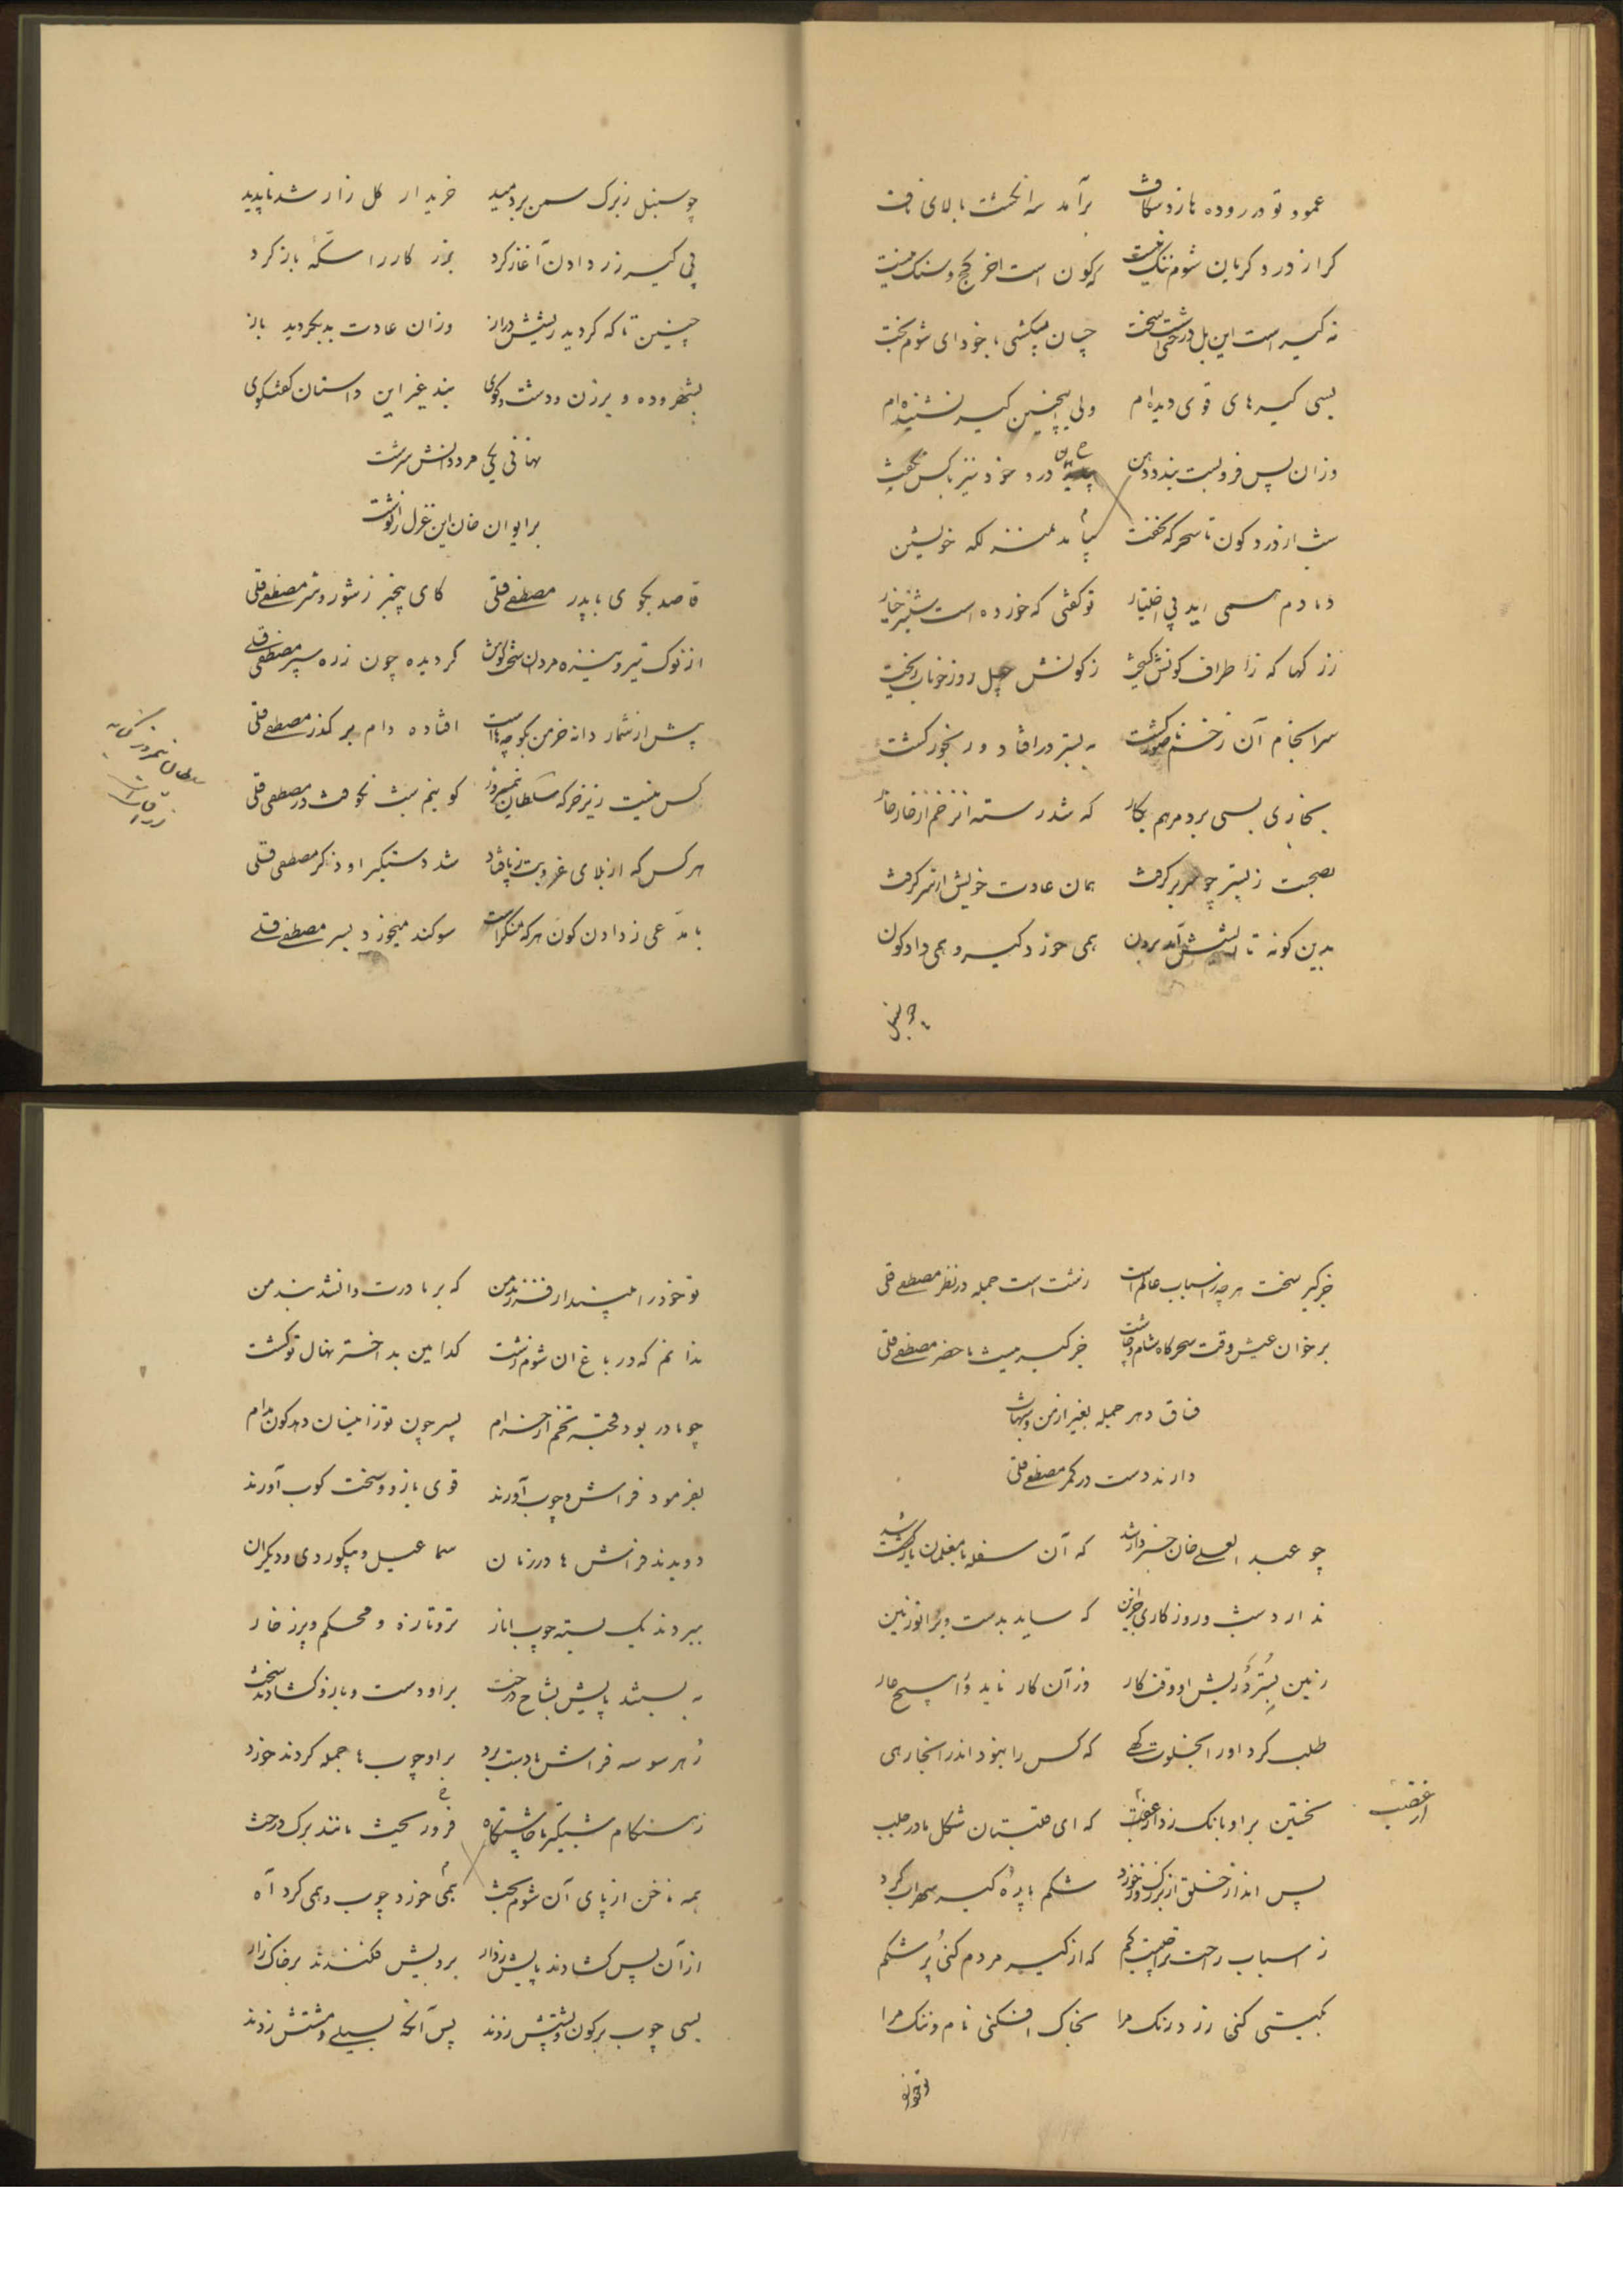 عمود تو در روده ها زد شکاف برآمد سه انگشت بالای ناف
کرا از درد کریان شوم ننک نیست که کون است اخر کچ و سنک نیست
نه کیر است این بل درختی است سخت چسان میکشی با خود ای شوم بخت
بسی کیرهای قوی دیده ام ولی اینچنین کیر نشنیده ام
وزان پس فرو بست بنده دهن درد خود نیز باکس نکفت
شب از درد کون تا سحر که نخفت بیامد بمنزلکه خویش
دمادم همی اید بی اختیار تو کفتی که خورده است شیر خیار
زرکها که زاطراف کونش کسیخت زکونش چهل روز خوناب ریخت
سرانجام آن زخم ناصور کشت به بستر درافتاد و رنجور کشت
بخاری بسی برد مرهم بکار که شد رسته از زخم از خار خار
بصحبت زبستر چو سر بر کرفت همان عادت خویش از سر کرفت
بدین کونه تا ریشش آمد برون همی خورد کیر و همی داد کون
چو سنبل
چو سنبل زبرک سمن بردمید خریدار کل زار شد ناپدید
پی کیر زر دادن آغاز کرد بزر کار را سکه باز کرد
چنین تا که کردید ریشش دراز وزان عادت بد نکردید باز
بشهر و ده و برزن و دشت و کوی بند غیر این داستان کفتکوی
نهانی یکی مرد دانش سرشت
بر ایوان خان این غزل را نوشت
قاصد بکوی با پدر مصطفی قلی کای بیخبر زشور و شر مصطفی قلی
از نوک تیر و نیزه مردان سخت کوش کردیده چون زره سپر مصطفی قلی
پیش از شمار دانه خرمن بکوچه ها است افتاده دام بر کذر مصطفی قلی
کس نیست زیر خرکه سلطان نیمروز کو نیم شب نخوفت در مصطفی قلی
سلطان نیمروز کنایه
از آفتاب است
هر کس که از بلای عزوبت زپا فتاد شد دستکیر او ذکر مصطفی قلی
با مدعی زدادن کون هر که منکر است سوکند میخورد بسر مصطفی قلی
جز کیر سخت هر چه زاسباب عالم است زشت است جمله در نظر مصطفی قلی
بر خوان عیش وقت سحرکاه شام و چاشت جز کیر نیست ما حضر مصطفی قلی
فساق دهر جمله بغیر از من و شهاب
دارند دست در کمر مصطفی قلی
چو عبد العلی خان خبردار شد که آن سفله با مغلمان یار شد
ندارد شب و روز کاری جز این که ساید بدست و برانو زنین
زنین بسترد ریش او وقت کار وز آن کار ناید ورا هیچ عار
طلب کرد او را بخلوت کهی که کس را نبود اندر انجا رهی
نخستین بر او بانک زد از غضب که ای قلتبان شکل مادر جلب
از غضب
پس انداز خلق از بزرک و خورد شکم باره کیر سهراب کرد
ز اسباب راحت ترا چیست کم که از کیر مردم کنی پر شکم
بکیتی کنی زرد رنک مرا بخاک افکنی نام و ننک مرا
تو خود را
تو خود را مپندار فرزند من که بر مادرت دانشد بند من
ندانم که در باغ ان شوم زشت کدامین بد اختر نهال تو کشت
چو مادر بود قحبه تخم از حرام پسر چون تو زاینسان دهد کون مدام
بفرمود فراش و چوب آورند قوی بازو و سخت کوب آورند
دویدند فراش ها در زمان سماعیل و بیکوردی و دیکران
ببردند یک بسته چوب انار تر و تازه و محکم و پر ز خار
به بستند پایش بشاخ درخت بر او دست و بازو کشادند سخت
ز هر سو سه فراش با دست برد بر او چوب ها جمله کردند خورد
ز هنکام شبکیر تا چاشتکاه فرو ریخت مانند برک درخت
همه ناخن از پای آن شوم بخت همی خورد چوب و همی کرد آه
از آن پس کشادند پایش ز دار برویش فکندند بر خاک زار
بسی چوب بر کون و پشتش زدند پس آنکه بسیلی و مشتش زدند